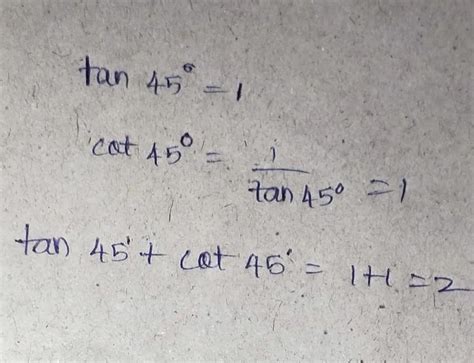 tan 45° = 1
cot 45° = 1/tan 45° = 1
tan 45° + cot 45° = 1+1 = 2